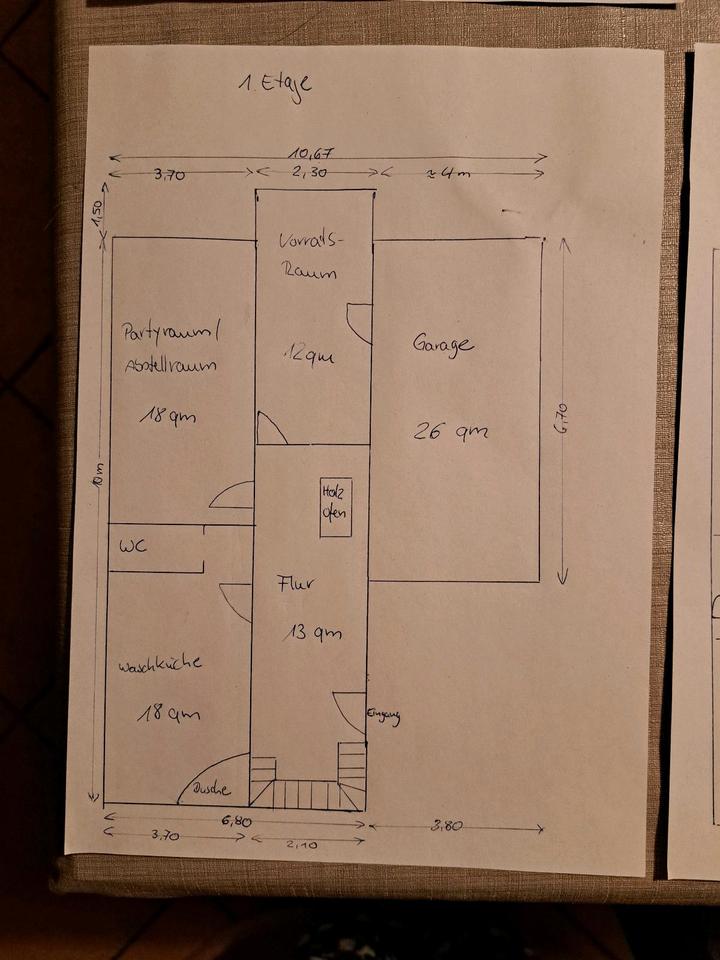 1. Etage
10,67
3,70
2,30
≈ 4m
1,50
Vorrats-
Raum
12qm
Partyraum/
Abstellraum
18 qm
Garage
26 qm
6,70
10m
Holz
ofen
WC
Flur
13 qm
Waschküche
18 qm
Eingang
Dusche
6,80
3,80
3,70
2,10